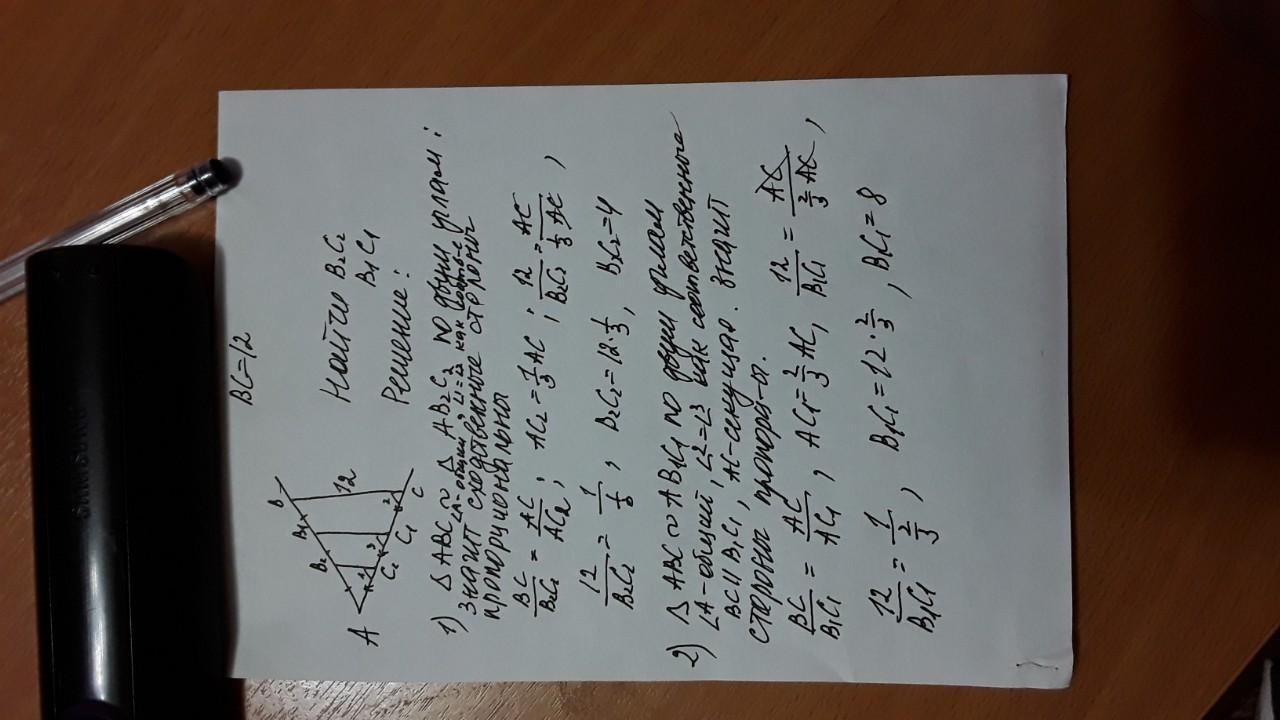 BC=12
Найти B₂C₂
B₁C₁
Решение:
A B₂ B₁ B 12 C₂ C₁ C
1) △ABC ∾ △AB₂C₂ по двум углам:
∠A-общий,
значит сходственные стороны
пропорциональны
BC/B₂C₂ = AC/AC₂, AC₂ = 1/3 AC; 12/B₂C₂ = AC/(1/3 AC),
12/B₂C₂ = 1/(1/3), B₂C₂ = 12·1/3, B₂C₂=4
2) △ABC ∾ AB₁C₁ по двум углам
∠A-общий, ∠2=∠3 как соответственные
BC∥B₁C₁, AC-секущая. Значит
стороны пропорц-ы.
BC/B₁C₁ = AC/AC₁, AC₁=2/3 AC, 12/B₁C₁ = AC/(2/3 AC),
12/B₁C₁ = 1/(2/3), B₁C₁ = 12·2/3, B₁C₁=8
SAMSUNG